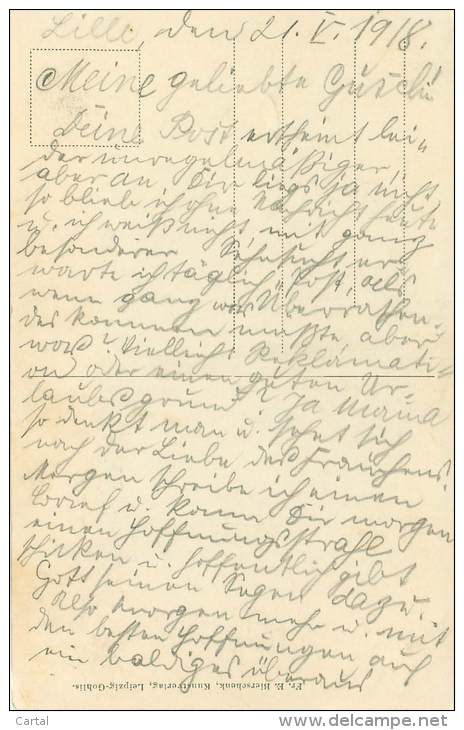 Lille, den 21. V. 1918.
Meine geliebte
Deine Post erscheint lei-
der unregelmäßiger,
aber an Dir liegs ja nicht
so blieb ich ohne Nachricht heute
u. ich weiß nicht mit ganz
besonderer Sehnsucht er-
warte ich täglich Post, als
wenn ganz was Überraschen-
des kommen müßte, aber
was? Vielleicht Reklamati-
on oder einen guten Ur-
laubsgrund? Ja Mama
so denkt man u. sehnt sich
nach der Liebe des Frauchens.
Morgen schreibe ich einen
Brief u. kann Dir morgen
einen Hoffnungsstrahl
schicken u. hoffentlich gibt
Gott seinen Segen dazu.
Also morgen mehr u. mit
den besten Hoffnungen auf
ein baldiges überaus
Fr. E. Bierschenk, Kunstverlag, Leipzig-Gohlis.
Cartal
delcampe.net